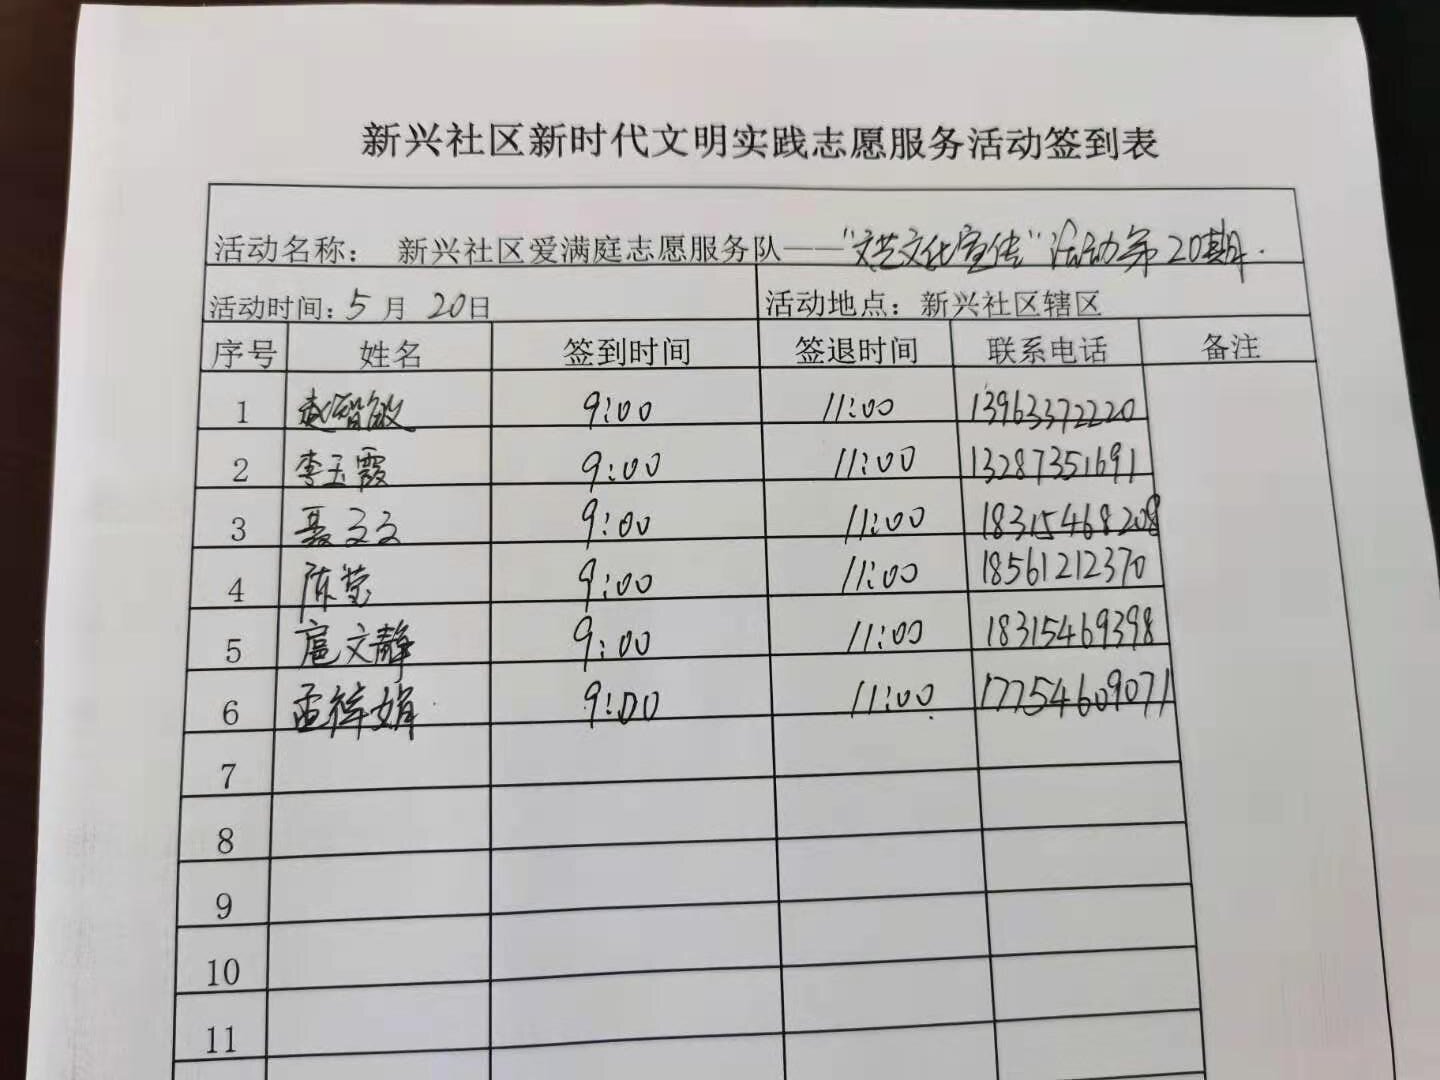 新兴社区新时代文明实践志愿服务活动签到表
活动名称： 新兴社区爱满庭志愿服务队——“文艺文化宣传”活动第20期.
活动时间：5月 20日 活动地点：新兴社区辖区
序号 姓名 签到时间 签退时间 联系电话 备注
1 赵智敏 9:00 11:00 13963372220
2 李玉霞 9:00 11:00 13287351691
3 聂文文 9:00 11:00 18315468208
4 陈莹 9:00 11:00 18561212370
5 扈文静 9:00 11:00 18315469398
6 孟祥娟 9:00 11:00 17754609071
7
8
9
10
11